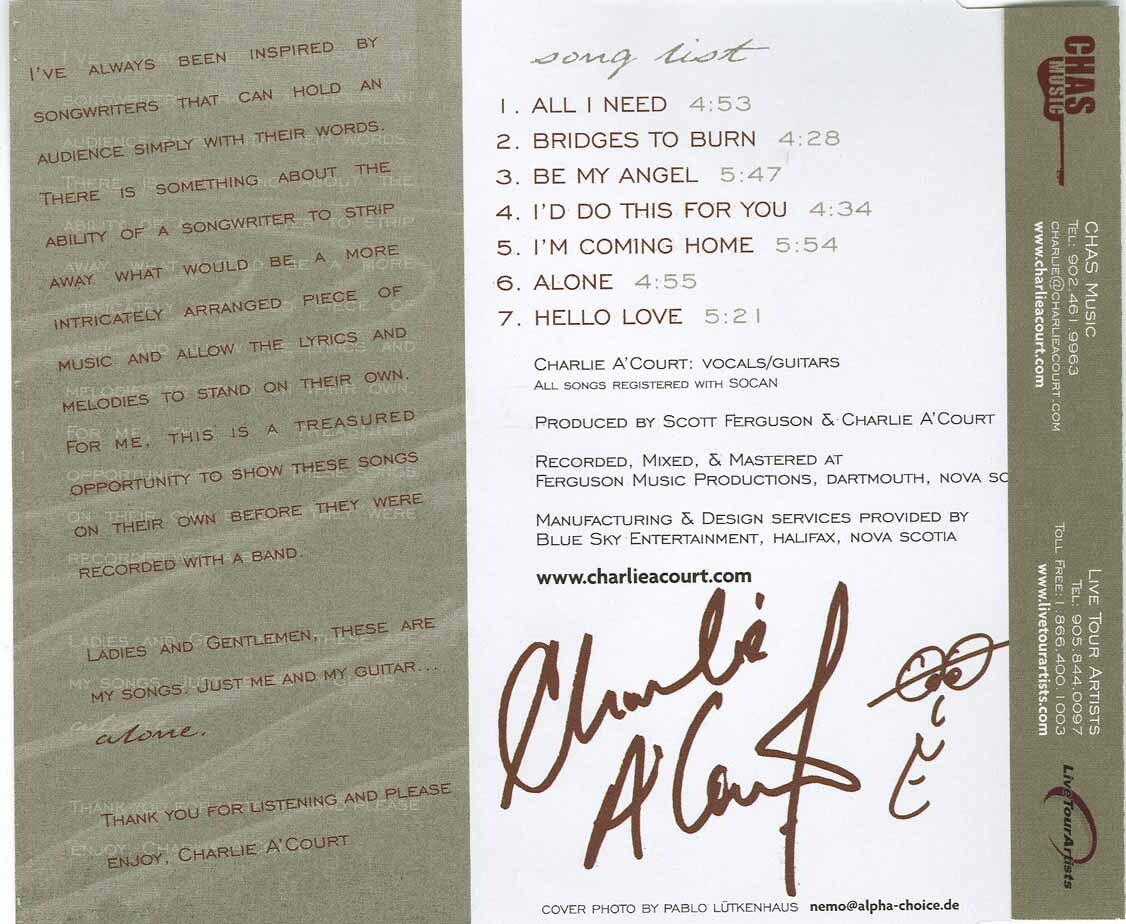 I'VE ALWAYS BEEN INSPIRED BY
SONGWRITERS THAT CAN HOLD AN
AUDIENCE SIMPLY WITH THEIR WORDS.
THERE IS SOMETHING ABOUT THE
ABILITY OF A SONGWRITER TO STRIP
AWAY WHAT WOULD BE A MORE
INTRICATELY ARRANGED PIECE OF
MUSIC AND ALLOW THE LYRICS AND
MELODIES TO STAND ON THEIR OWN.
FOR ME, THIS IS A TREASURED
OPPORTUNITY TO SHOW THESE SONGS
ON THEIR OWN BEFORE THEY WERE
RECORDED WITH A BAND.
LADIES AND GENTLEMEN, THESE ARE
MY SONGS. JUST ME AND MY GUITAR...
alone.
THANK YOU FOR LISTENING AND PLEASE
ENJOY, CHARLIE A'COURT
song list
1. ALL I NEED 4:53
2. BRIDGES TO BURN 4:28
3. BE MY ANGEL 5:47
4. I'D DO THIS FOR YOU 4:34
5. I'M COMING HOME 5:54
6. ALONE 4:55
7. HELLO LOVE 5:21
CHARLIE A'COURT: VOCALS/GUITARS
ALL SONGS REGISTERED WITH SOCAN
PRODUCED BY SCOTT FERGUSON & CHARLIE A'COURT
RECORDED, MIXED, & MASTERED AT
FERGUSON MUSIC PRODUCTIONS, DARTMOUTH, NOVA SC
MANUFACTURING & DESIGN SERVICES PROVIDED BY
BLUE SKY ENTERTAINMENT, HALIFAX, NOVA SCOTIA
www.charlieacourt.com
Charlie
A'Court
COVER PHOTO BY PABLO LÜTKENHAUS nemo@alpha-choice.de
CHAS
MUSIC
CHAS MUSIC
TEL: 902.461.9963
CHARLIE@CHARLIEACOURT.COM
www.charlieacourt.com
LIVE TOUR ARTISTS
TEL: 905.844.0097
TOLL FREE: 1.866.400.1003
www.livetourartists.com
LiveTourArtists